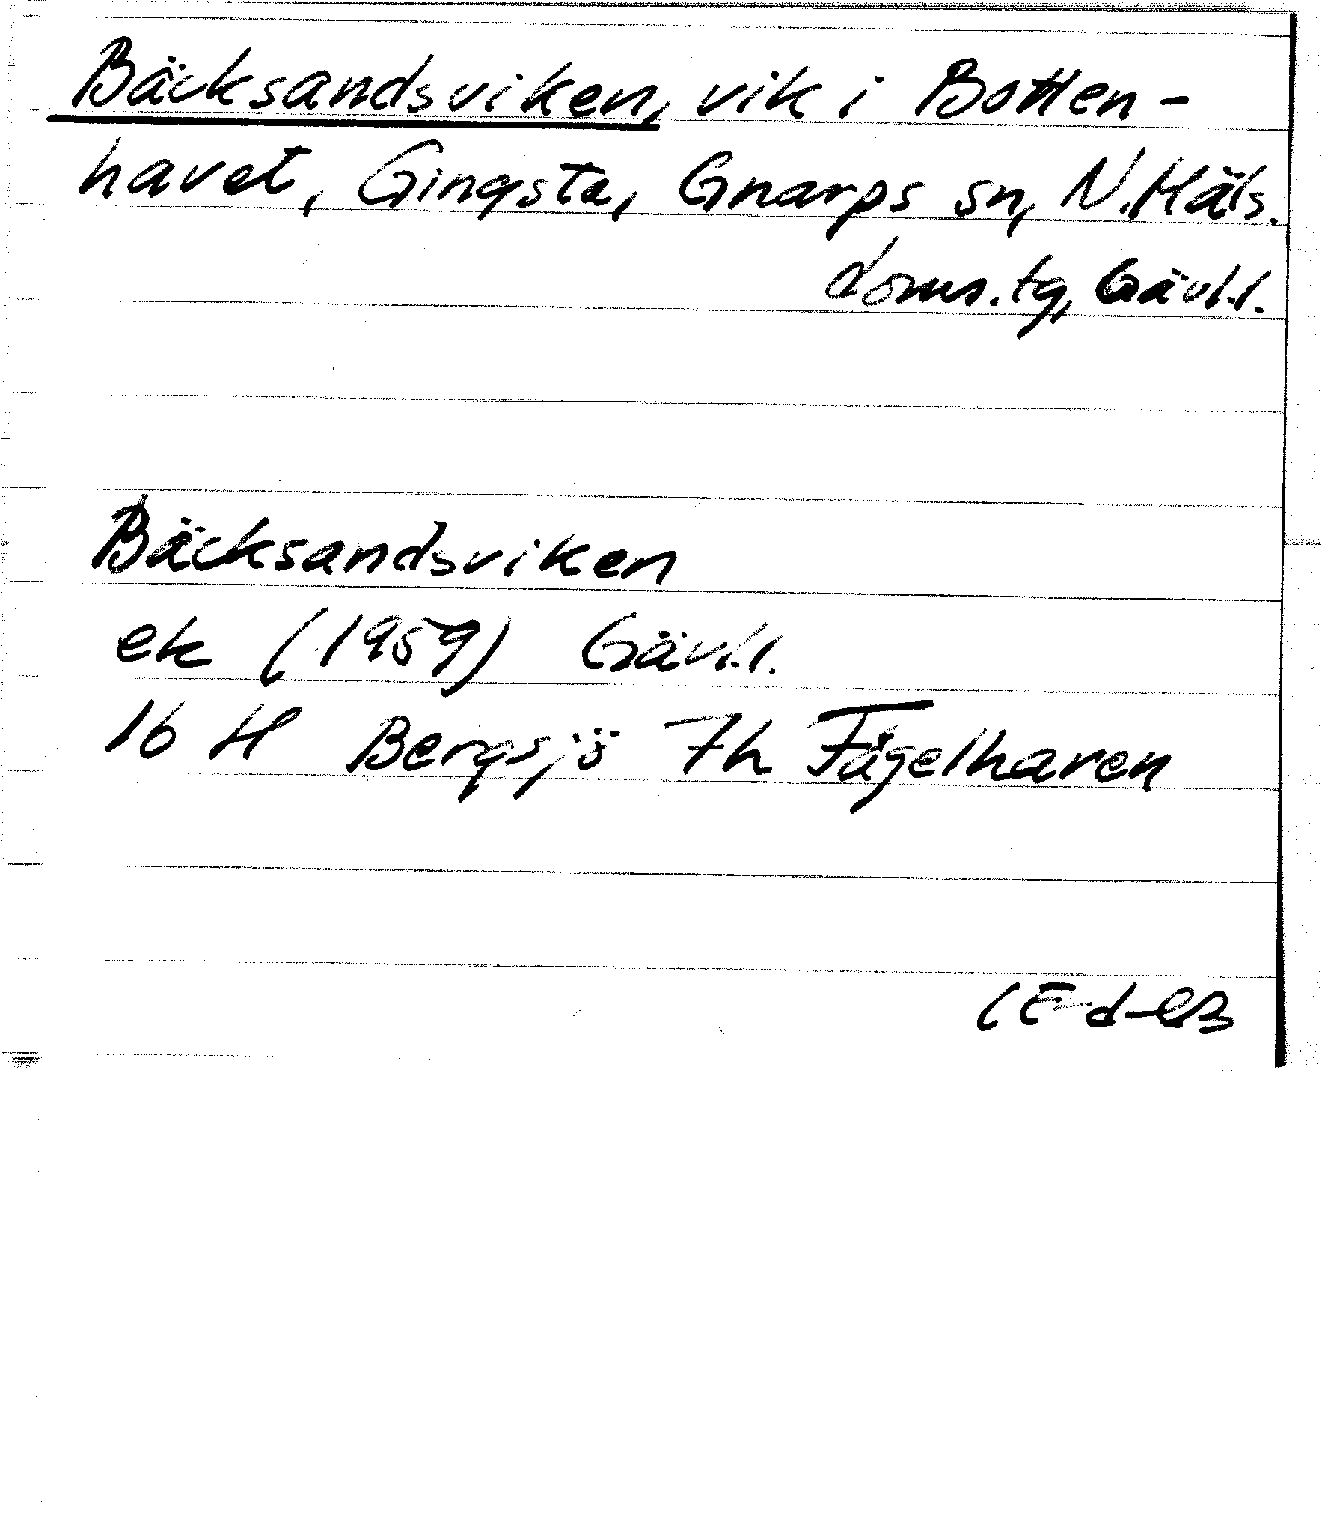 Bäcksandsviken, vik i Botten-
havet, Gingsta, Gnarps sn, N. Häls.
doms. tg, Gävl.l.
Bäcksandsviken
ek (1959) Gävl.l.
16 H Bergsjö 7h Fågelharen